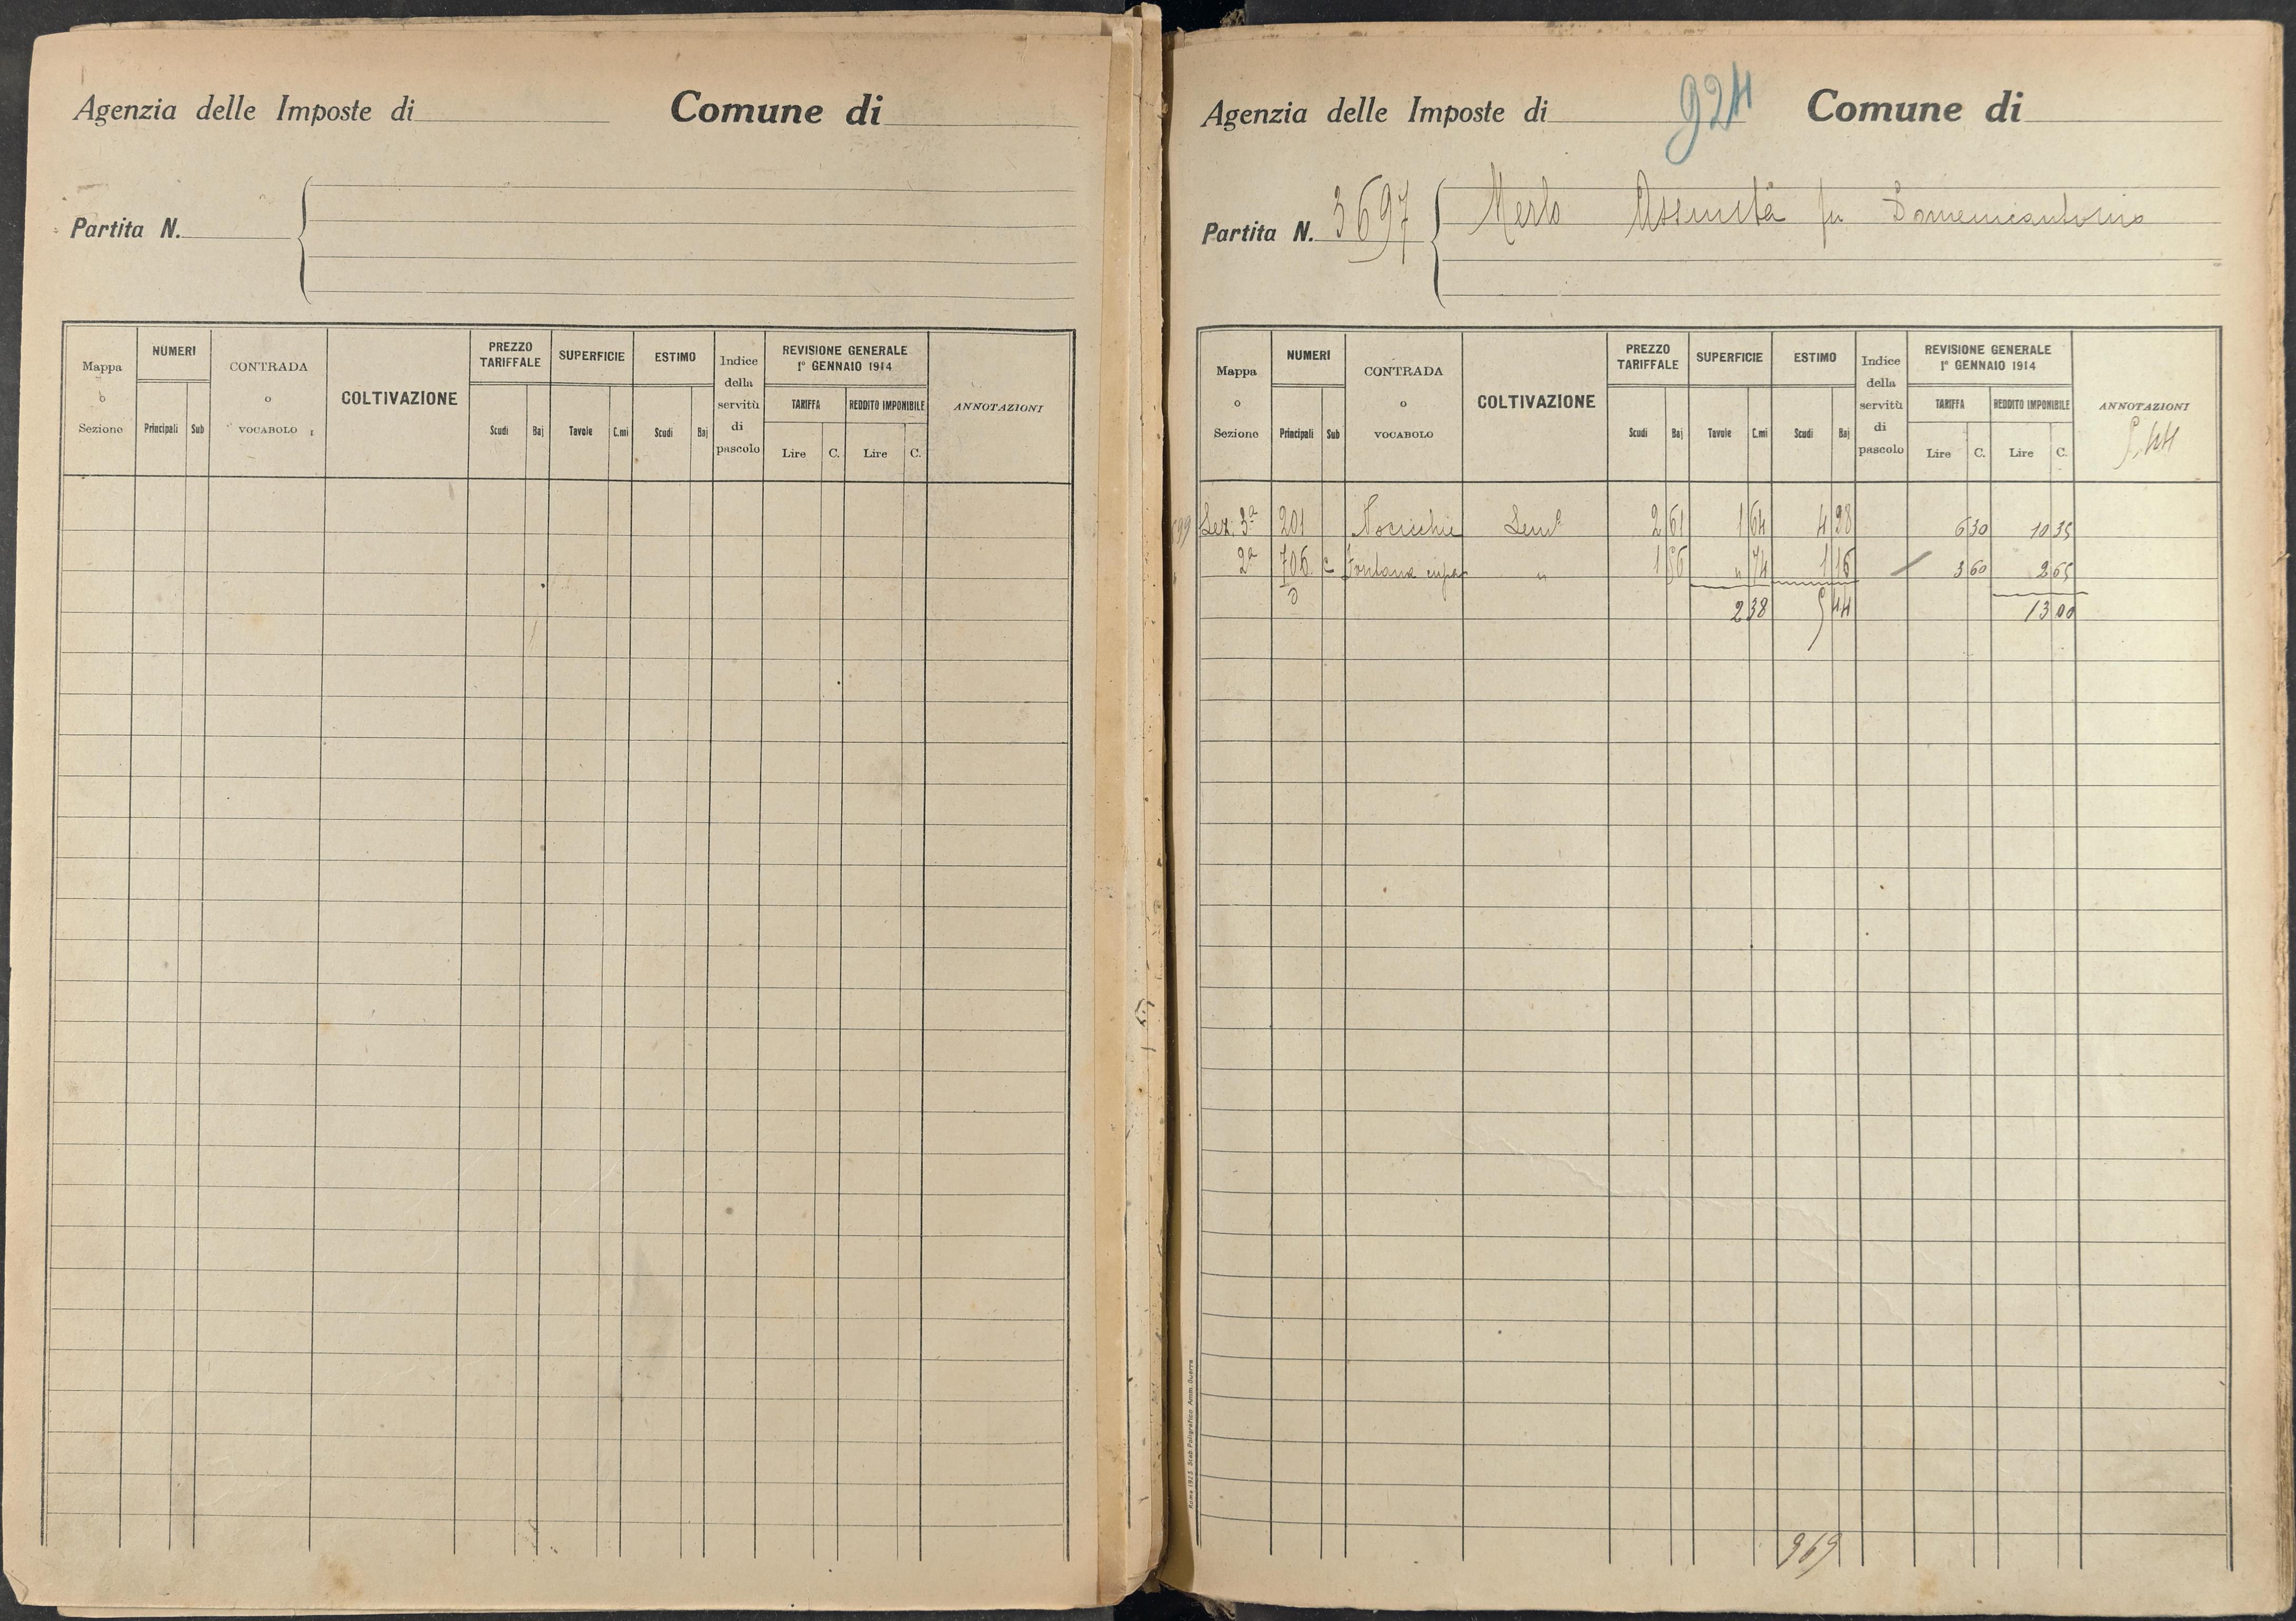 Agenzia delle Imposte di Comune di
Partita N.
Mappa o Sezione NUMERI Principali Sub CONTRADA o VOCABOLO COLTIVAZIONE PREZZO TARIFFALE Scudi Baj SUPERFICIE Tavole C.mi ESTIMO Scudi Baj Indice della servitù di pascolo REVISIONE GENERALE 1° GENNAIO 1914 TARIFFA Lire C. REDDITO IMPONIBILE Lire C. ANNOTAZIONI
924
Agenzia delle Imposte di Comune di
Partita N. 3697 Merlo Assunta fu Domenicantonio
Mappa o Sezione NUMERI Principali Sub CONTRADA o VOCABOLO COLTIVAZIONE PREZZO TARIFFALE Scudi Baj SUPERFICIE Tavole C.mi ESTIMO Scudi Baj Indice della servitù di pascolo REVISIONE GENERALE 1° GENNAIO 1914 TARIFFA Lire C. REDDITO IMPONIBILE Lire C. ANNOTAZIONI
5,44
Sez. 3ª 201 Nocicchie Semº 2 61 1 64 4 28 6 30 10 35
2ª 706 Fontana cupa " 1 56 " 74 1 16 3 60 2 65
2 38 5 44 13 00
969
Roma 1923. Stab. Poligrafico Amm. Guerra